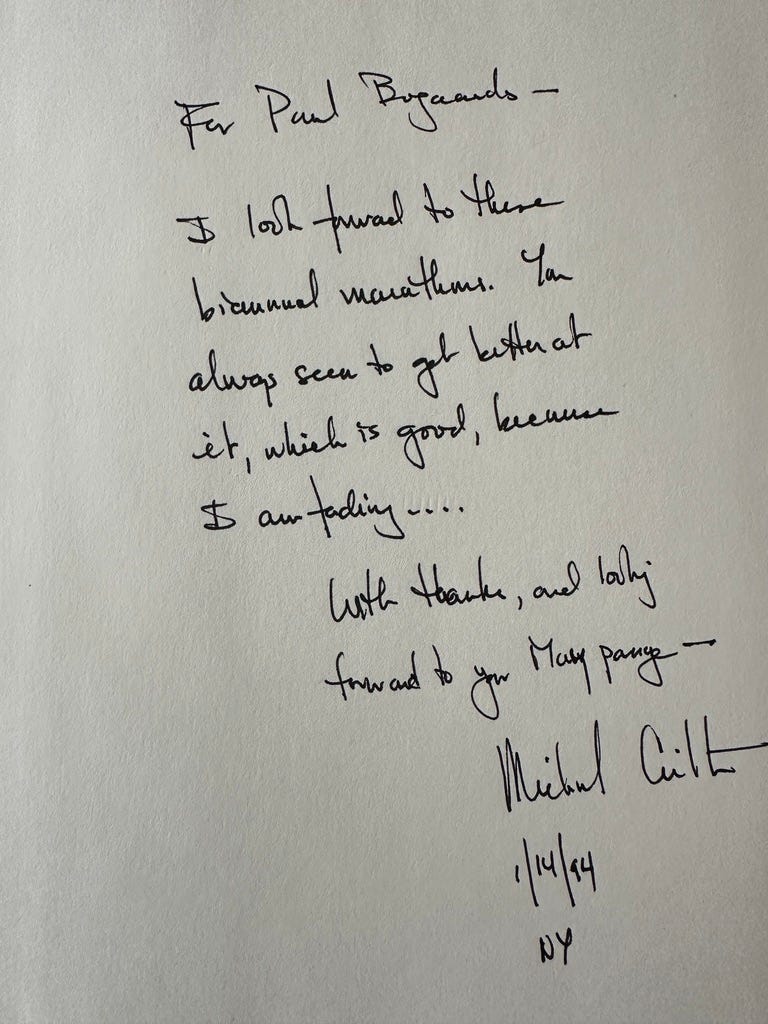 For Paul Bogaards —
I look forward to these
biannual marathons. You
always seem to get better at
it, which is good, because
I am fading....
With thanks, and looking
forward to your many pango —
Michael Crichton
1/14/94
NY